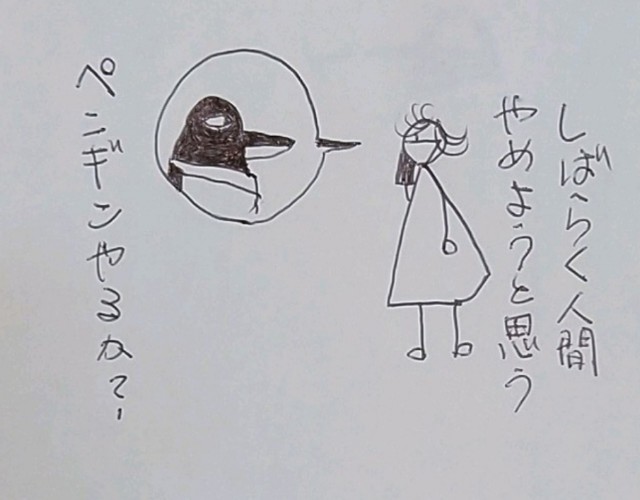 しばらく人間
やめようと思う
ペンギンやるかて